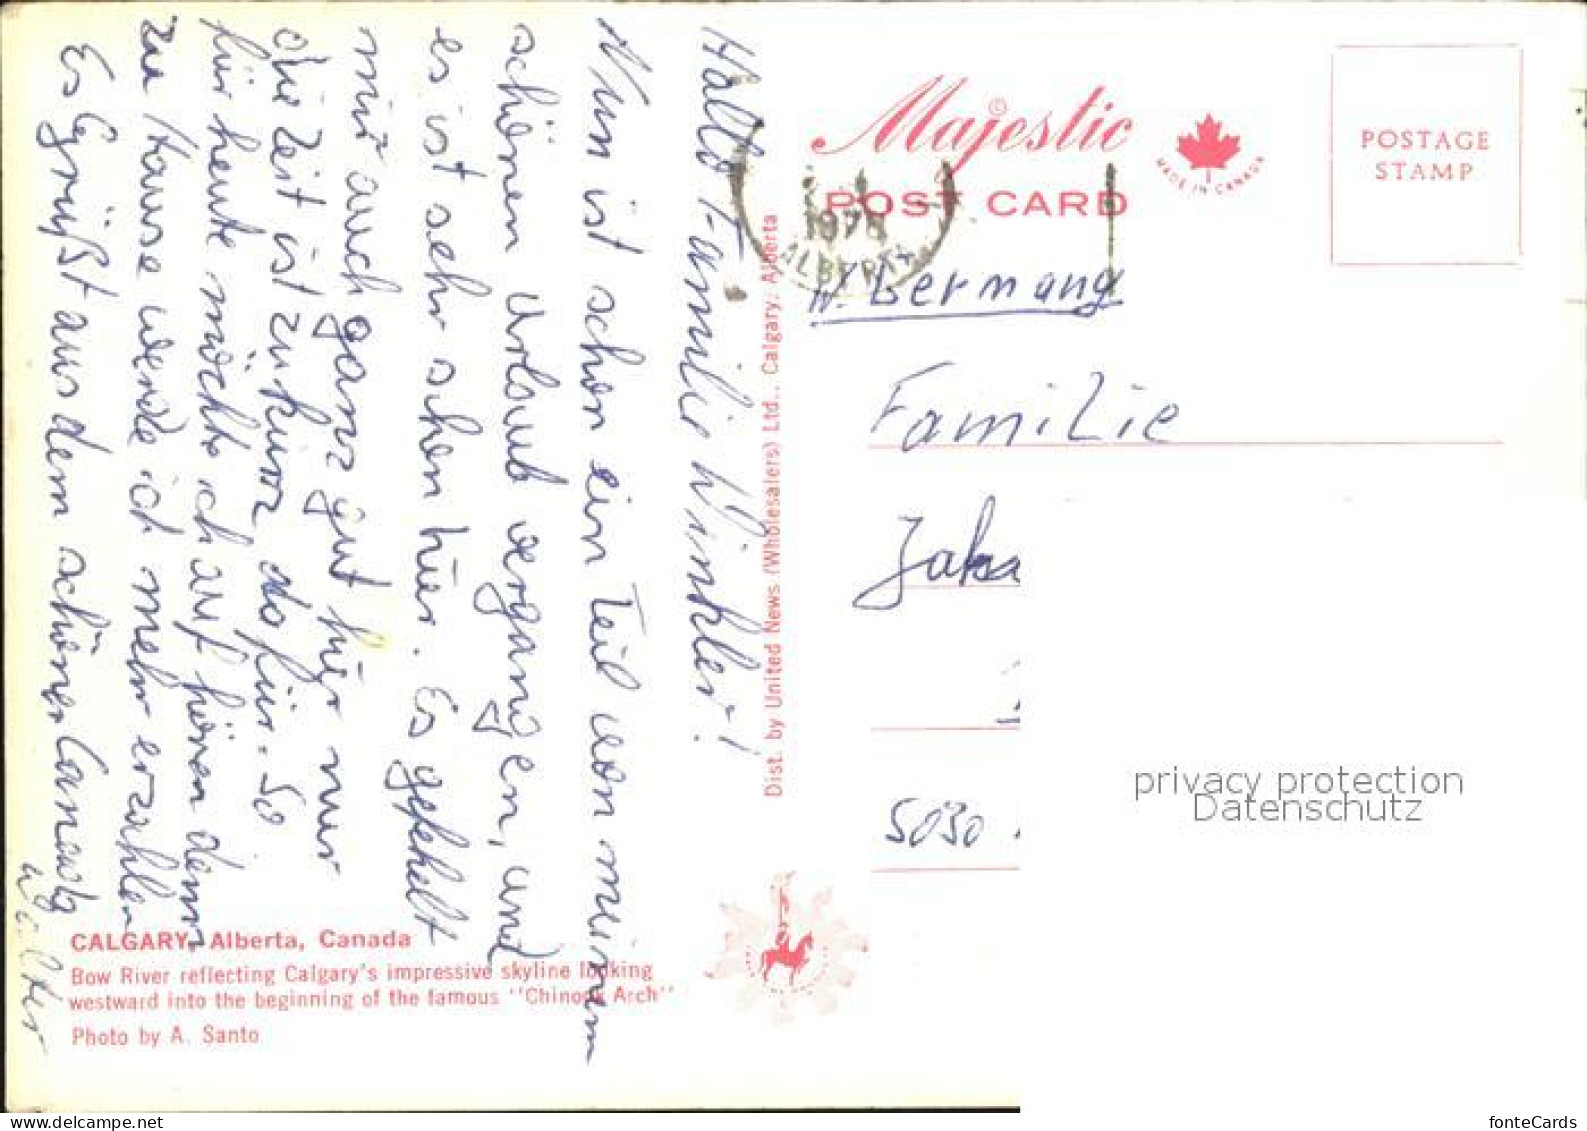 Hallo Familie Winkler!
Nun ist schon ein Teil von meinem
schönen Urlaub vergangen, und
es ist sehr schön hier. Es gefehlt
mir auch ganz gut hier nur
die Zeit ist zu kurz dafür. So
für heute möchte ich auf hören denn
zu Hause werde ich mehr erzahlen
Es Egrüßt aus dem schönen Canada
Walter
CALGARY, Alberta, Canada
Bow River reflecting Calgary's impressive skyline looking
westward into the beginning of the famous "Chinook Arch"
Photo by A. Santo
Dist. by United News (Wholesalers) Ltd., Calgary, Alberta
Majestic ©
POST CARD
MADE IN CANADA
POSTAGE
STAMP
1978
ALBERTA
W. Germany
Familie
5030
privacy protection
Datenschutz
fonteCards